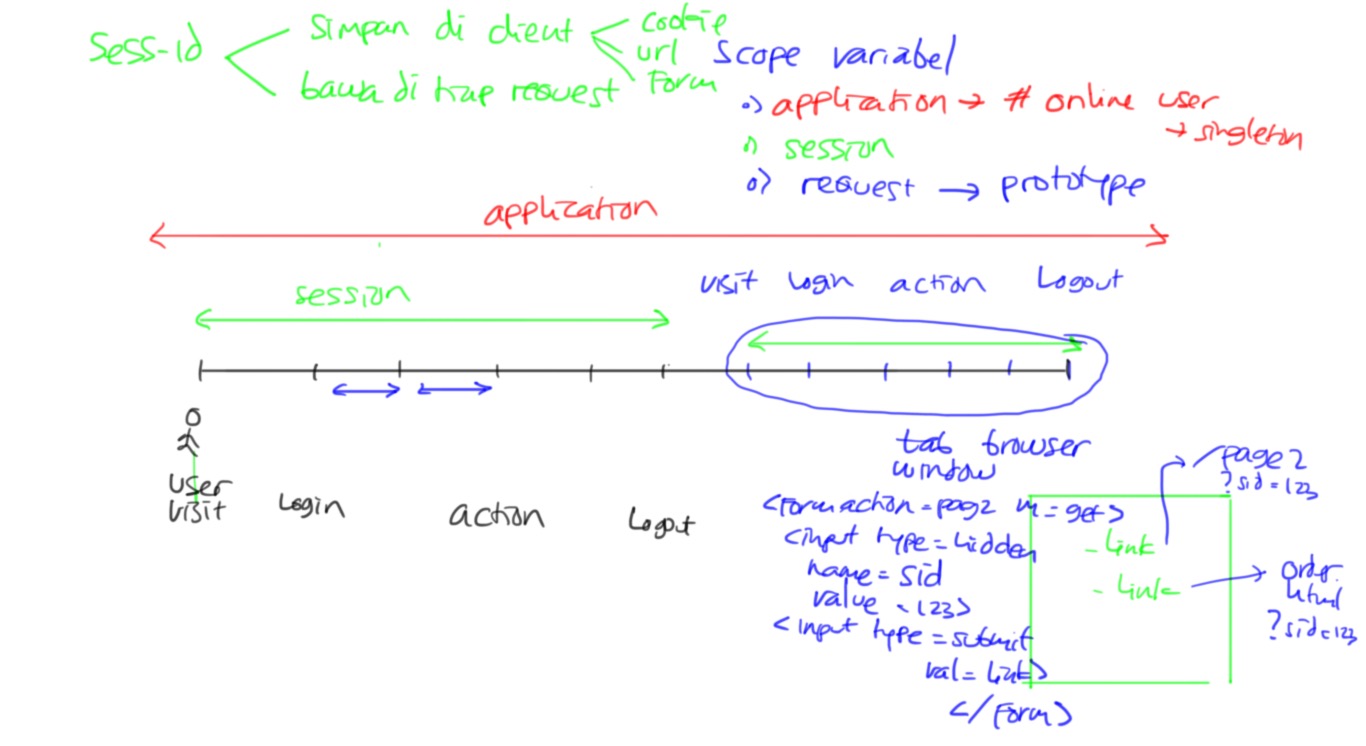 Sess-id
simpan di client
cookie
url
Form
bawa di tiap request
scope variabel
•) application → # online user
→ singleton
•) session
•) request → prototype
application
session
visit login action Logout
user
visit
Login
action
Logout
tab browser
window
<form action=page2 m=get>
<input type=hidden
name=sid
value=123>
<input type=submit
val=link>
</Form>
- link
- link
/page2
?sid=123
order.
html
?sid=123